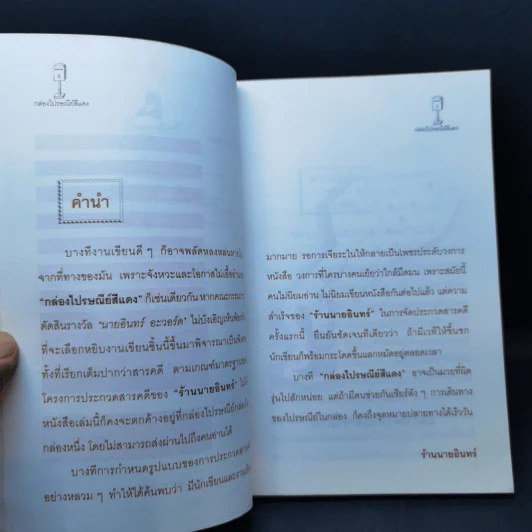 กล่องไปรษณีย์สีแดง
คำนำ
บางทีงานเขียนดี ๆ ก็อาจพลัดหลงหล่นหายไป
จากที่ทางของมัน เพราะจังหวะและโอกาสไม่เอื้ออำนวย
"กล่องไปรษณีย์สีแดง" ก็เช่นเดียวกัน หากคณะกรรมการ
ตัดสินรางวัล 'นายอินทร์ อะวอร์ด' ไม่บังเอิญเห็นพ้อง
ที่จะเลือกหยิบงานเขียนชิ้นนี้ขึ้นมาพิจารณาเป็นพิเศษ
ทั้งที่เรียกเต็มปากว่าสารคดี ตามเกณฑ์มาตรฐานของ
โครงการประกวดสารคดีของ "ร้านนายอินทร์"
หนังสือเล่มนี้ก็คงจะตกค้างอยู่ที่กล่องไปรษณีย์กล่องใด
กล่องหนึ่ง โดยไม่สามารถส่งผ่านไปถึงคนอ่านได้
บางทีการกำหนดรูปแบบของการประกวด
อย่างหลวม ๆ ทำให้ได้ค้นพบว่า มีนักเขียนและงาน
กล่องไปรษณีย์สีแดง
มากมาย รอการเจียระไนให้กลายเป็นเพชรประดับวงการ
หนังสือ วงการที่ใครบางคนเย้ยว่าใกล้มืดมน เพราะสมัยนี้
คนไม่นิยมอ่าน ไม่นิยมเขียนหนังสือกันต่อไปแล้ว แต่ความ
สำเร็จของ "ร้านนายอินทร์" ในการจัดประกวดสารคดี
ครั้งแรกนี้ ยืนยันชัดเจนทีเดียวว่า ถ้ามีเวทีให้ขึ้นชก
นักเขียนก็พร้อมกระโดดขึ้นแลกหมัดอยู่ตลอดเวลา
บางที "กล่องไปรษณีย์สีแดง" อาจเป็นมวยที่ผิด
รุ่นไปสักหน่อย แต่ถ้ามีคนช่วยกันเชียร์ดัง ๆ การเดินทาง
ของไปรษณีย์ในกล่อง ก็คงถึงจุดหมายปลายทางได้เร็ววัน
ร้านนายอินทร์